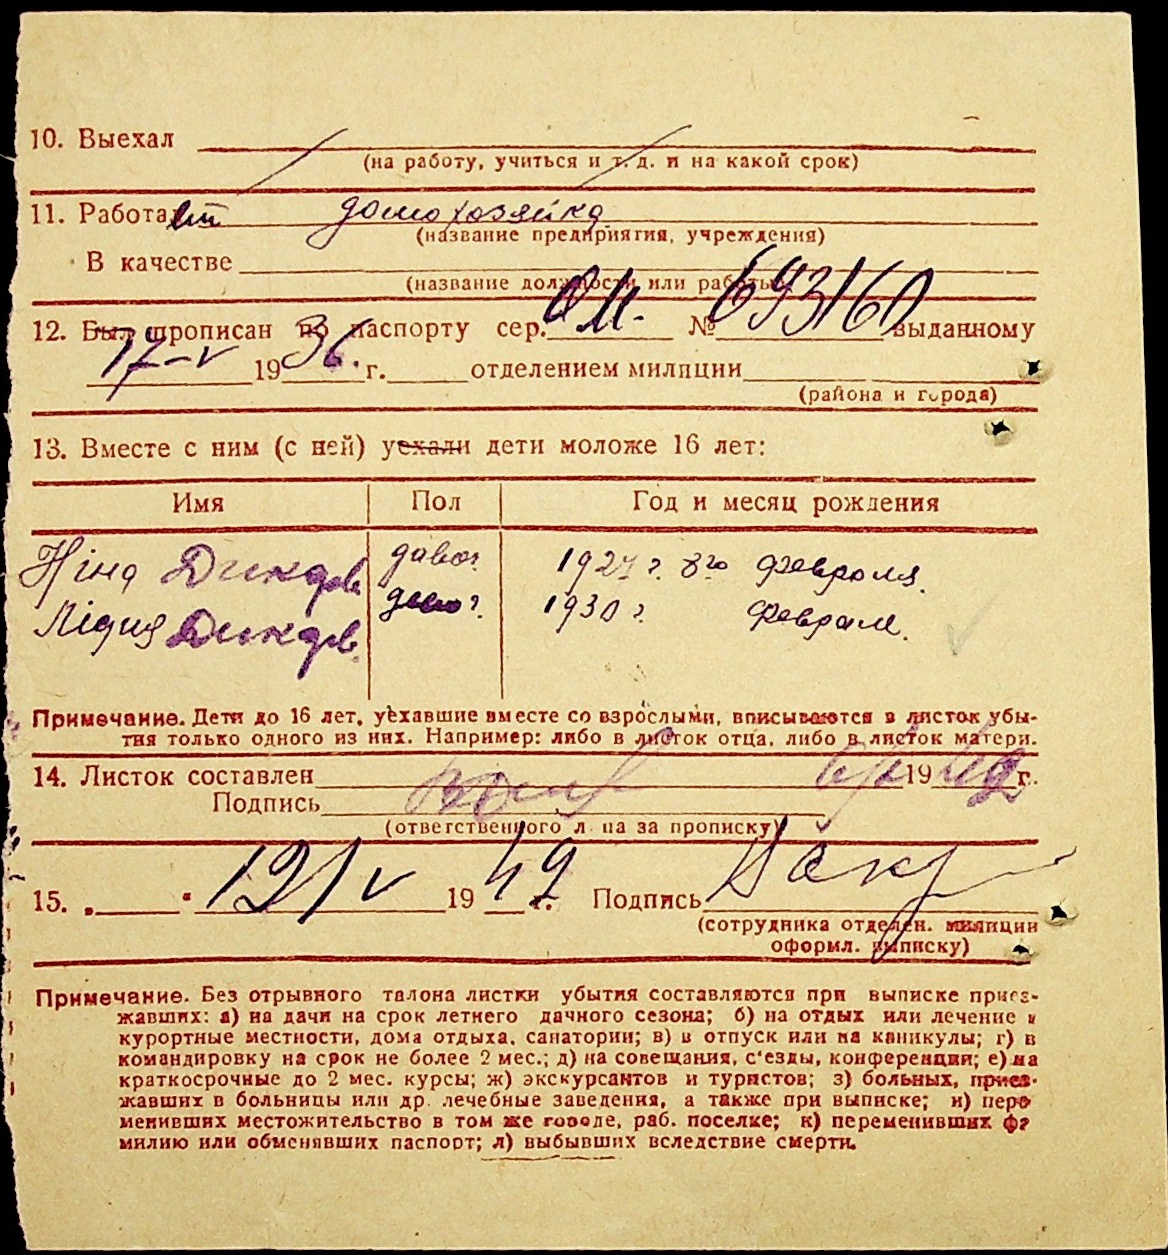 10. Выехал
(на работу, учиться и т. д. и на какой срок)
11. Работает домохозяйка
(название предприятия, учреждения)
В качестве
(название должности или работы)
12. Был прописан по паспорту сер. ОМ. № 693160 выданному
17-V 1936. г. отделением милиции
(района и города)
13. Вместе с ним (с ней) уехали дети моложе 16 лет:
Имя Пол Год и месяц рождения
Ніна 1927 г. 8го февраля
Лідия 1930 г. февраля.
Примечание. Дети до 16 лет, уехавшие вместе со взрослыми, вписываются в листок убы-
тия только одного из них. Например: либо в листок отца, либо в листок матери.
14. Листок составлен 19 г.
Подпись
(ответственного лица за прописку)
15. „ " 12/V 1949 г. Подпись
(сотрудника отделен. милиции
оформл. выписку)
Примечание. Без отрывного талона листки убытия составляются при выписке приез-
жавших: а) на дачи на срок летнего дачного сезона; б) на отдых или лечение в
курортные местности, дома отдыха, санатории; в) в отпуск или на каникулы; г) в
командировку на срок не более 2 мес.; д) на совещания, с'езды, конференции; е) на
краткосрочные до 2 мес. курсы; ж) экскурсантов и туристов; з) больных, приез-
жавших в больницы или др. лечебные заведения, а также при выписке; и) пере
менивших местожительство в том же городе, раб. поселке; к) переменивших фа
милию или обменявших паспорт; л) выбывших вследствие смерти.